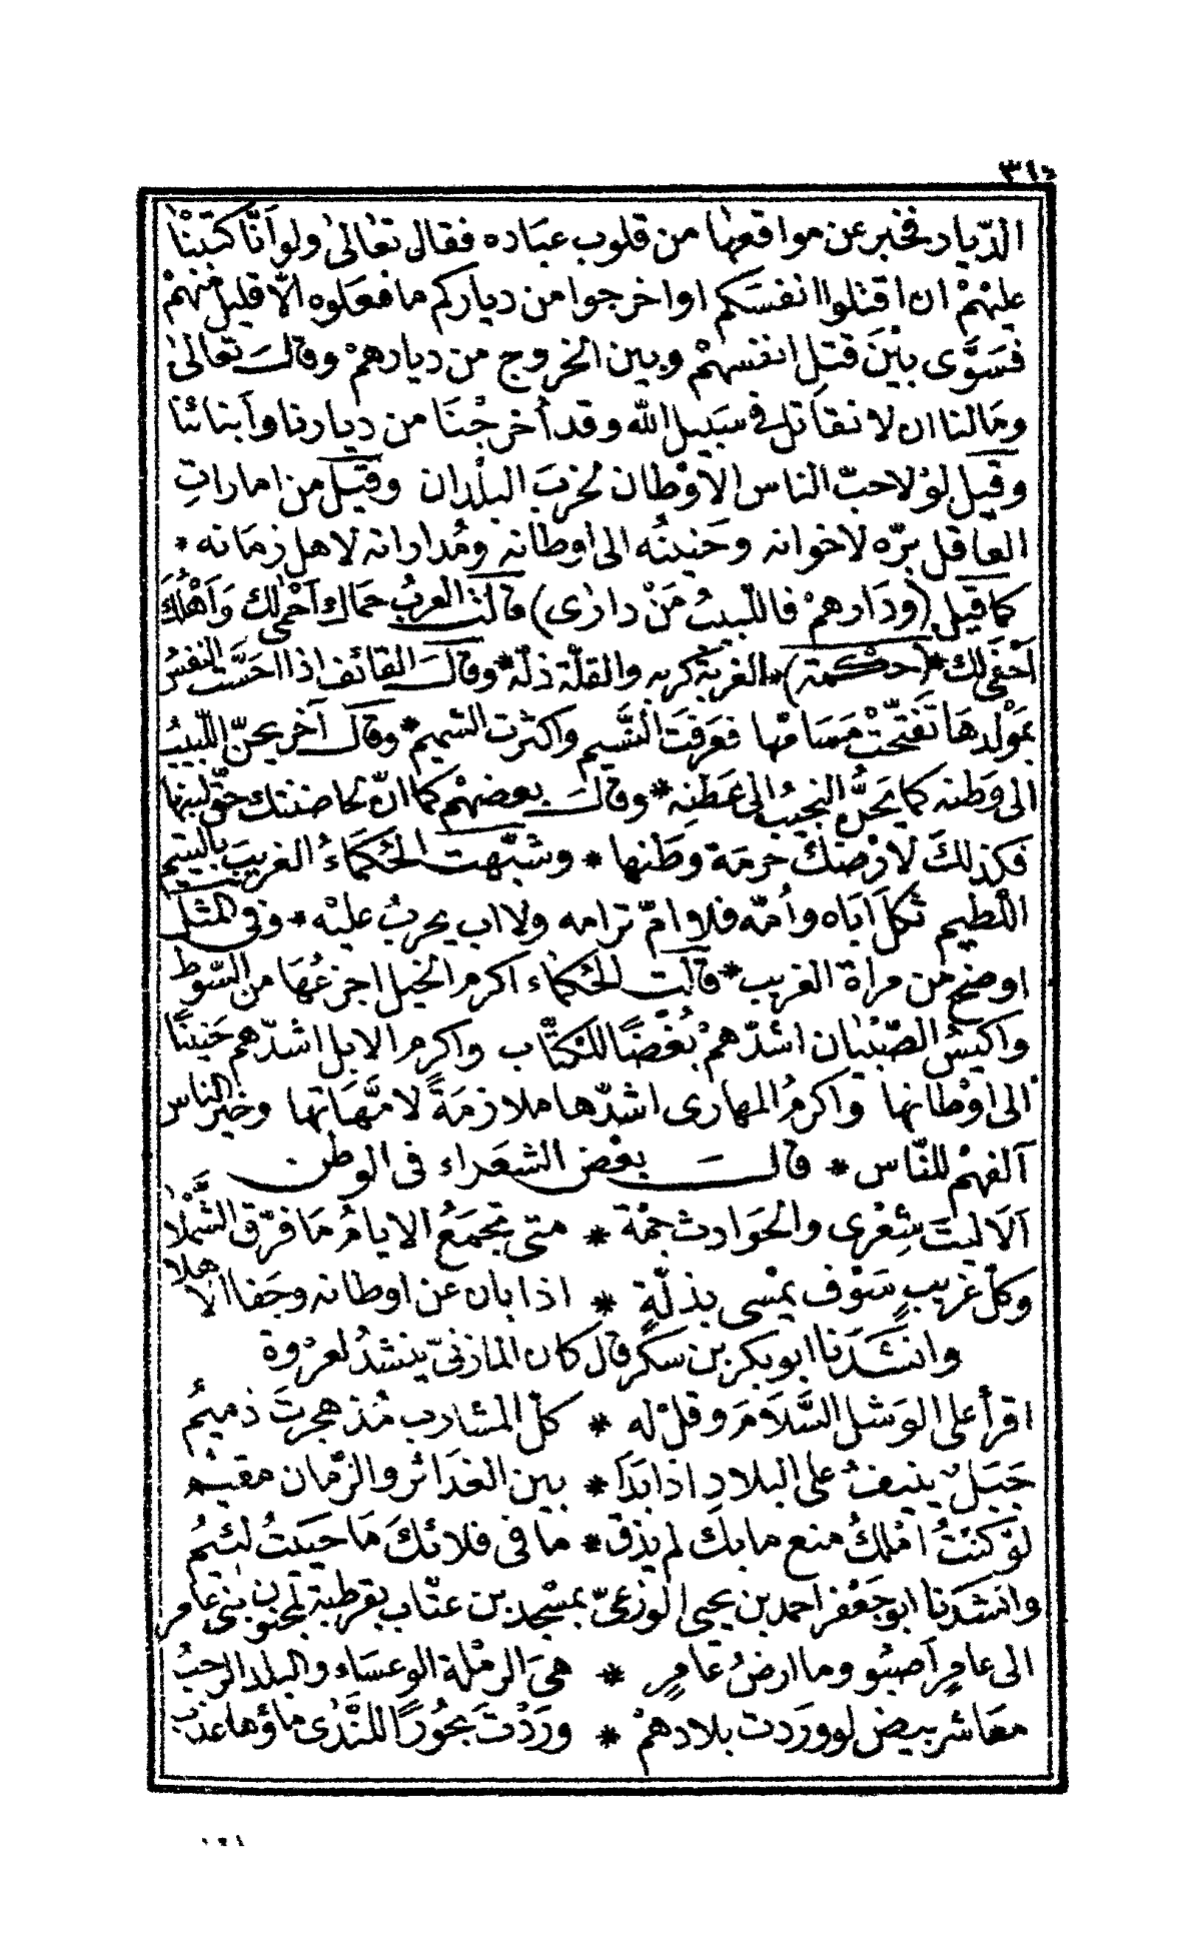 ٣١٥
الدّيار فخبر عن مواقعها من قلوب عباده فقال تعالى ولو أنّا كتبنا
عليهمْ ان اقتلوا انفسكم او اخرجوا من دياركم ما فعلوه الّا قليل منهمْ
فسَوَّى بيْنَ قتل انفسهمْ وبين الخروج من ديارهمْ وقال تعالى
ومَالنا ان لا نقاتل في سَبيل الله وقد أُخرجْنَا من ديارنا وأبنائنا
وقيل لوْلا حبّ الناس الأوْطان لخربَ البلْدان وقيل من امارات
العاقل برّه لاخوانه وحَنينُه الى اوطانه ومُداراته لاهل زمَانه *
كما قيل (ودَارهمْ فاللّبيبُ مَنْ دارى) قالت العربُ حمَاك أحْمى لك وَأهْلُكَ
أحْفى لك * (حكمة) * الغربَة كربه والقلّة ذلّة * وقالَ القائف اذا احَسَّت النفسُ
بمَوْلدهَا تفتّحَتْ مَسَامّها فعَرفَتَ النَّسيم واكثرت الشميم * وقال آخر يحنّ اللّبيبُ
الى وَطنه كما يَحنُّ النجيبُ الى عَطنِه * وقالَ بعضهْم كما انّ لحاضنتك حقّ لبنها
فكذلكَ لأرْضكَ حرمَة وَطنها * وشبّهت الحُكمَاءُ الغريبَ باليتيم
اللّطيم ثكلَ ابَاه وأُمّه فلا امّ ترامه ولا اب يحربُ عليْه * وفي المثل
اوضح من مراة الغريب * قالت الحُكماء اكرم الخيل اجزعُهَا من السّوط
واكيسُ الصّبْيان اشدّهمْ بُغْضًا للكتّاب واكرم الابل اشدّهم حَنينًا
الى اوْطانها واكرمُ المهارى اشدّها ملازمَةً لامّهَاتها وخيْر الناس
آلفهمْ للنّاس * قالَ بعْض الشعَراء في الوطن
ألَا ليتَ شِعْرى والحَوادث جمّة * متى تجمَعُ الايامُ مَا فرّق الشَّمْلا
وكلّ غريبٍ سَوْف يمْسى بذلّةٍ * اذا بان عن اوطانه وجَفا الاهلا
وانشَدَنا ابو بكر بن سكّر قال كان المازنىّ ينشدُ لعرْوة
اقرأ على الوَشل السَّلامَ وقلْ له * كلّ المشارب مُذ هجرتَ ذميمُ
جَبَلٌ ينيفُ على البلادِ اذا بَدَا * بين الغدَائر والرّمان مقيْم
لوْ كنتُ امْلكُ منع مابك لم يذق * ما في فلاتكَ مَا حييتُ لئيمُ
وانشدَنا ابو جَعْفر احمد بن يحيى الوزعىّ بمسْجد بن عتّاب بقرطبة لمجنون بنى عامر
الى عامرٍ أصبُو وما ارضُ عامرٍ * هىَ الرمْلة الوعسَاء والبلد الرحبُ
معَاشر بيض لو وردت بلادهمْ * وردْتَ بحُورًا للنَّدى ماؤها عذب